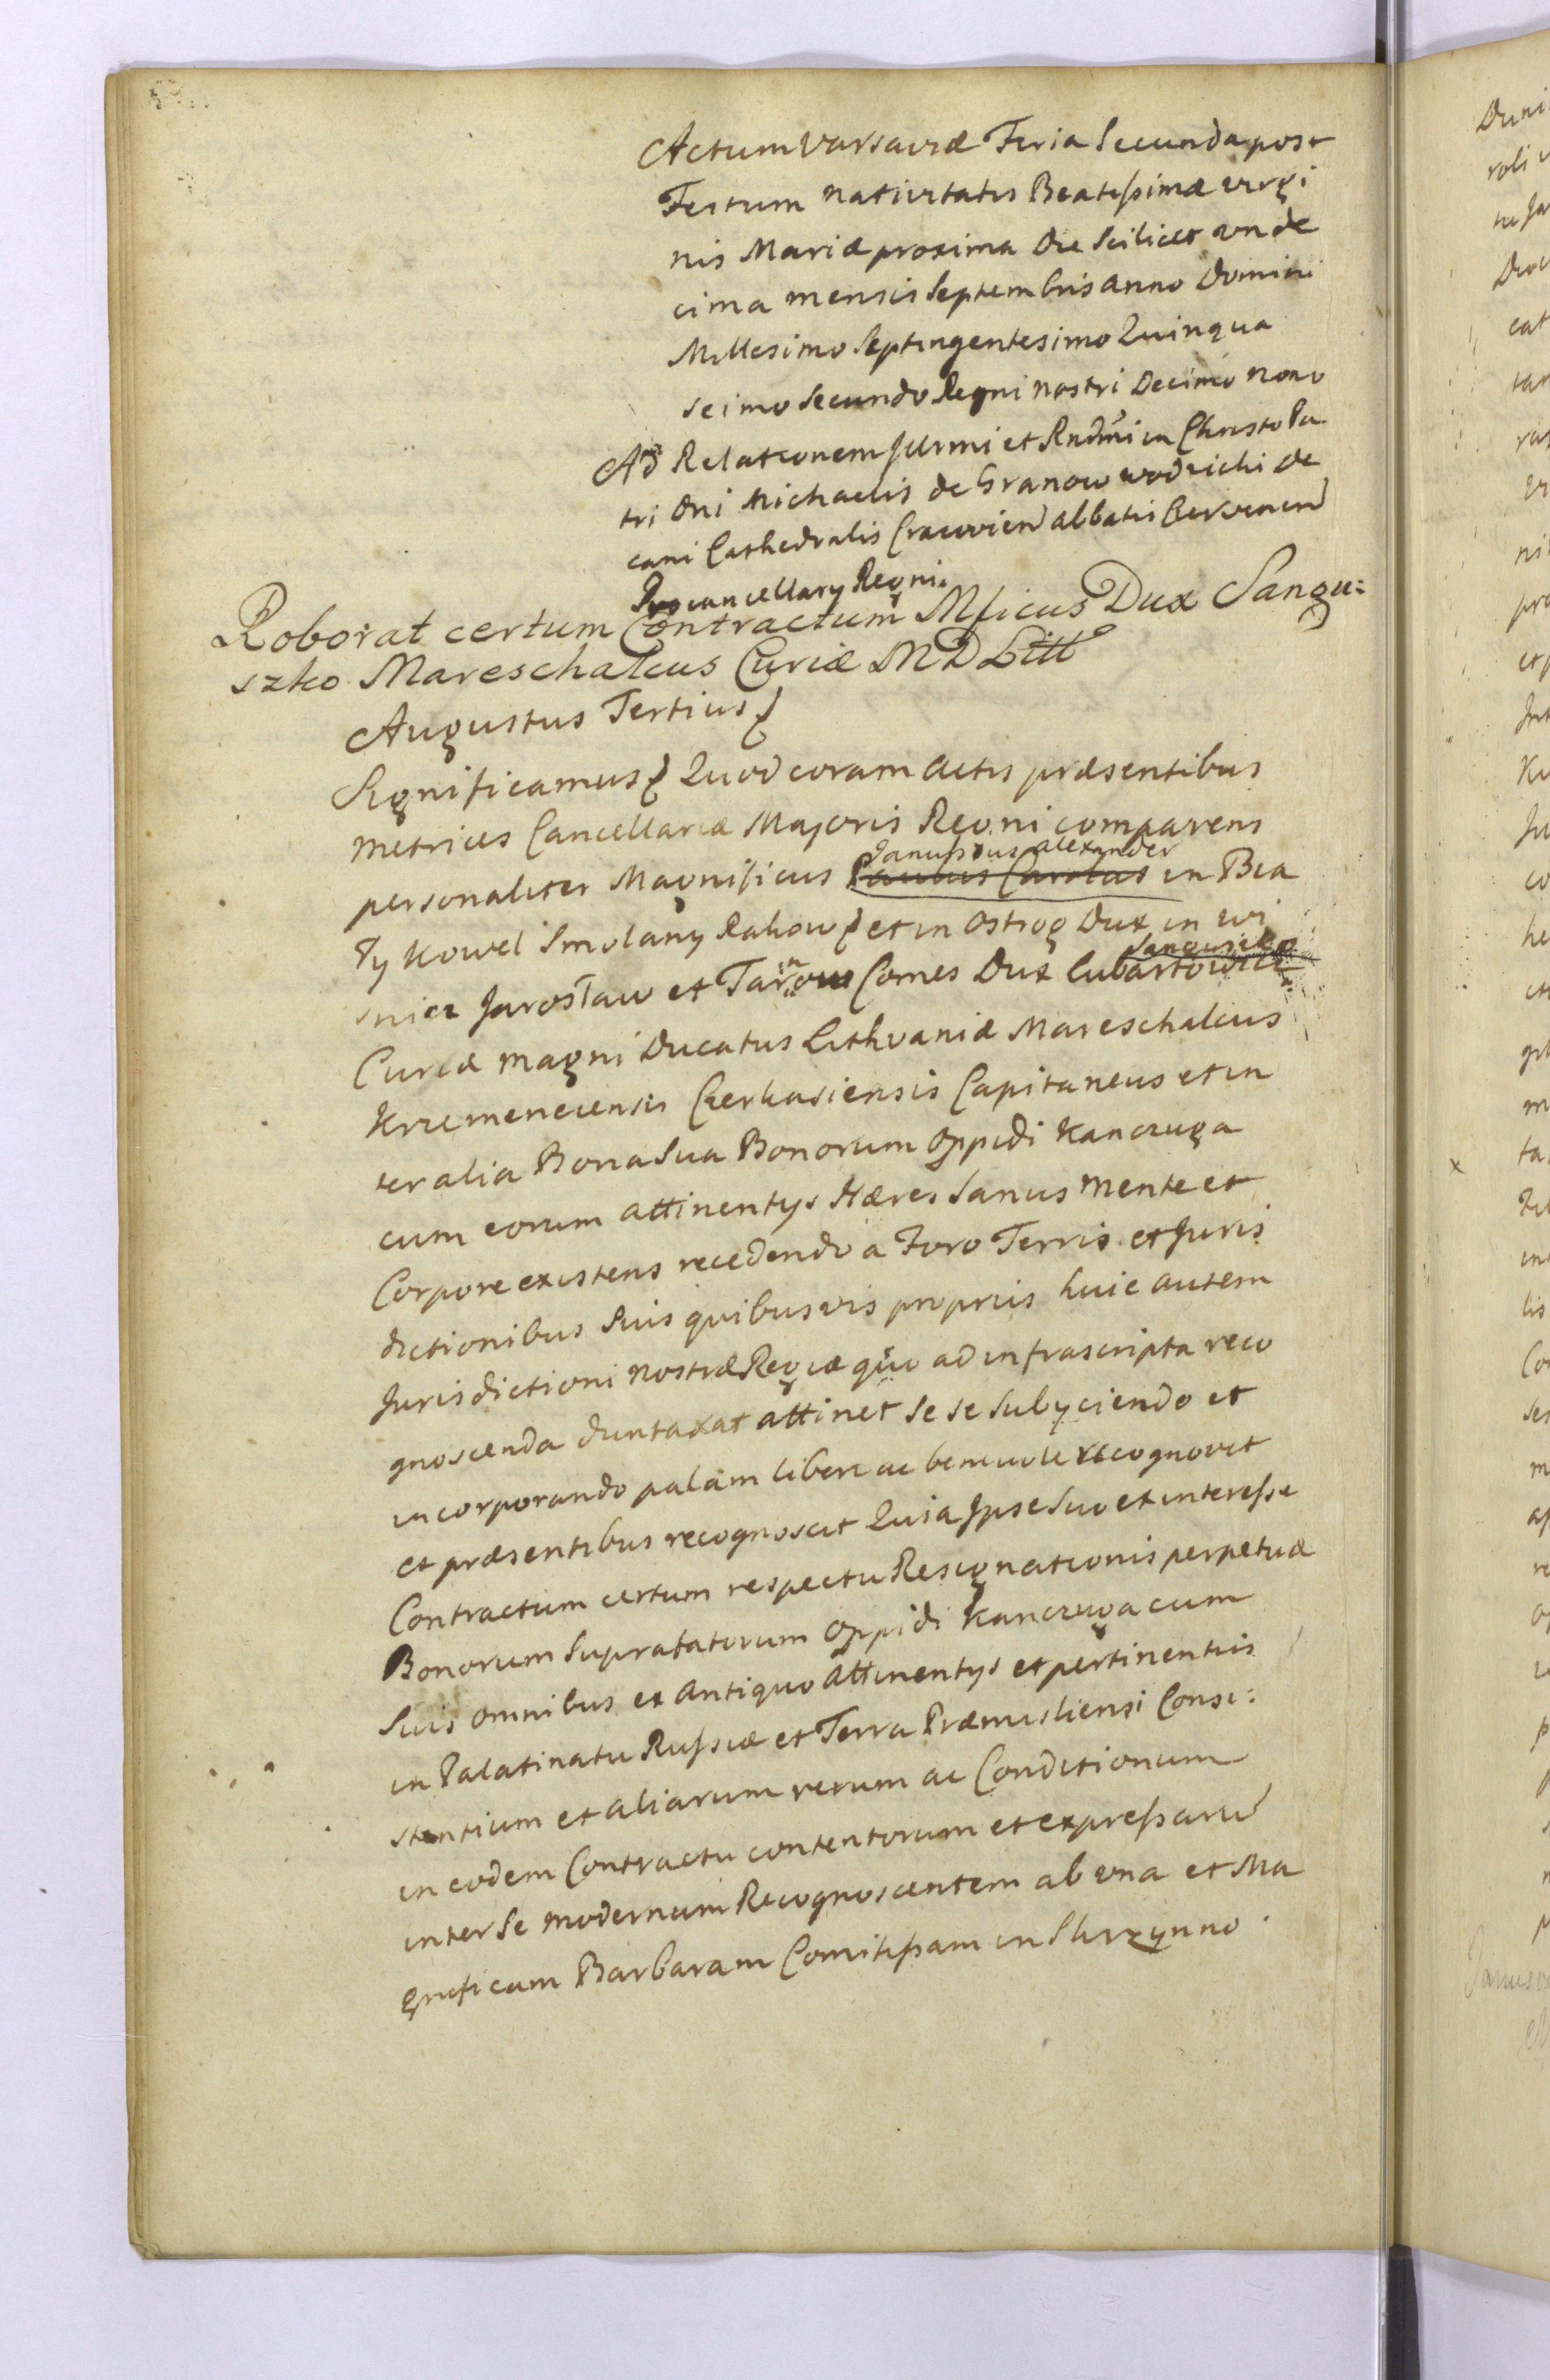 Actum Varsaviæ Feria Secunda post
Festum Nativitatis Beatissimæ virgi
nis Mariæ proxima Die Scilicet unde
cima mensis Septembris anno Domini
Millesimo Septingentesimo Quinqua
seimo Secundo Regni nostri Decimo nono
Ad Relationem Jllrmi et Rndmi in Christo Pa
tri Dni Michaelis de Granow wodzicki de
cani Cathedralis Cracovien abbatis Czervenen
Procancellary Regni.
Roborat certum Contractum Mficus Dux Sangu=
szko Mareschalcus Curiæ M D Litt
Augustus Tertius
Significamus Quod coram Actis præsentibus
metrices Cancellariæ Majoris Regni comparens
Janussius alexander
personaliter Magnificus Paulus Carolus in Bia
ły Kowel Smolany Rakow et in Ostrog Dux in wi
Sangusko
snicz Jarosław et Tarnow Comes Dux Lubartowicz
Curiæ magni Ducatus Lithvaniæ Mareschalcus
Krzemenecensis Czerkasiensis Capitaneus et in
ter alia Bona Sua Bonorum Oppidi Kanczuga
cum eorum attinentys Hæres Sanus mente et
Corpore existens recedendo a Foro Terris et Juris
dictionibus Suis quibusvis propriis huic autem
Jurisdictioni nostræ Regiæ quo ad infrascripta reco
gnoscenda duntaxat attinet se se subyciendo et
incorporando palam libere ac benevole recognovit
et præsentibus recognoscit Quia Jpse Suo et interesse
Contractum certum respectu Resignationis perpetuæ
Bonorum Supratatorum Oppidi Kanczuga cum
Suis omnibus ex Antiquo Attinentys et pertinentiis
in Palatinatu Russiæ et Terra Præmisliensi Consi:
stentium et Aliarum rerum ac Conditionum
in eodem Contractu contentorum et expressaru
inter Se modernum Recognoscentem ab una et Ma
gnificam Barbaram Comitissam in Skrzynno